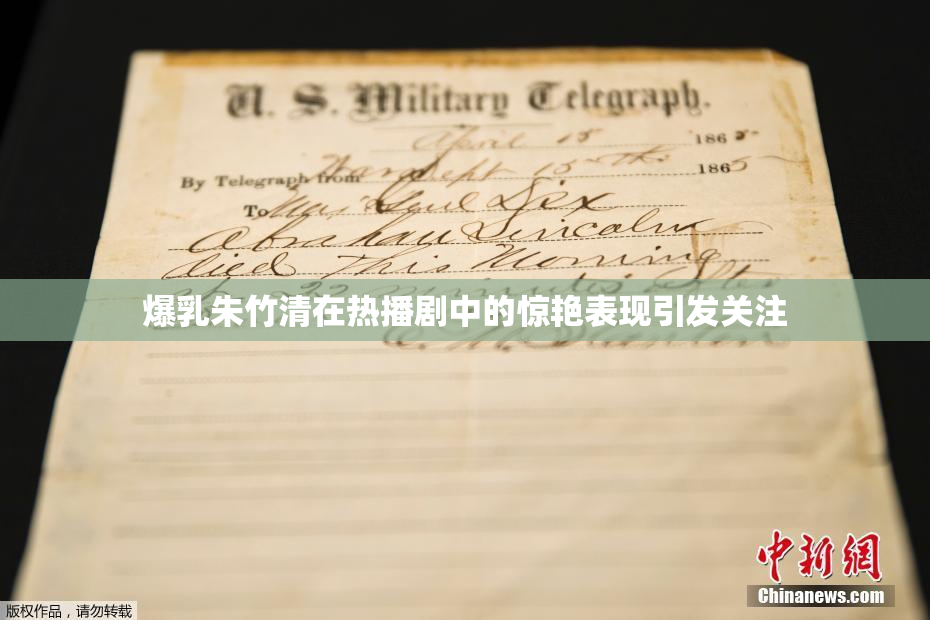 U. S. Military Telegraph.
April 15 1865
By Telegraph from War Dept 15th 1865
To Maj Genl Dix
Abraham Lincoln
died This Morning
at 22 minutes after
爆乳朱竹清在热播剧中的惊艳表现引发关注
E. M. Stanton
中新网
Chinanews.com
版权作品，请勿转载